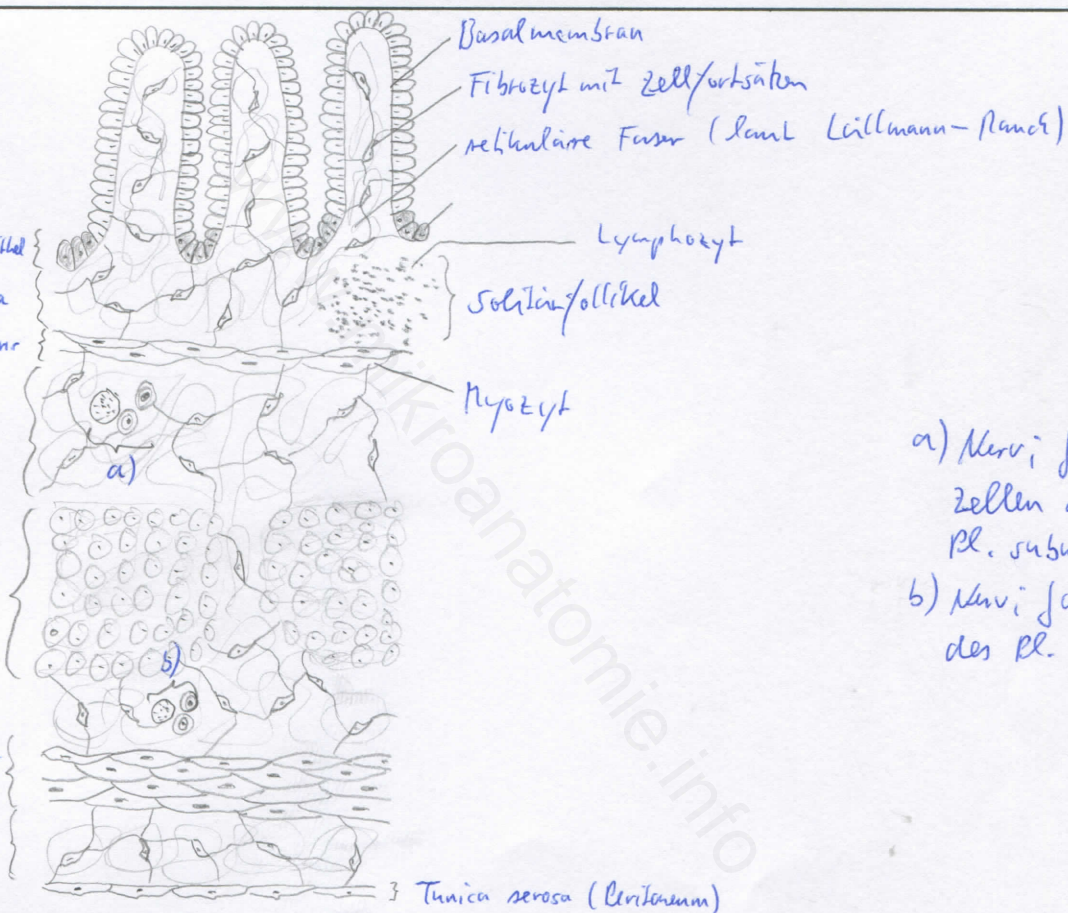 Basalmembran
Fibrozyt mit Zellfortsätzen
retikuläre Faser (laut Lüllmann-Rauch)
Lymphozyt
Solitärfollikel
Myozyt
a)
b)
a) Nervi
Zellen
Pl.
b) Nervi
des Pl.
Tunica serosa (Peritoneum)
mikroanatomie.info